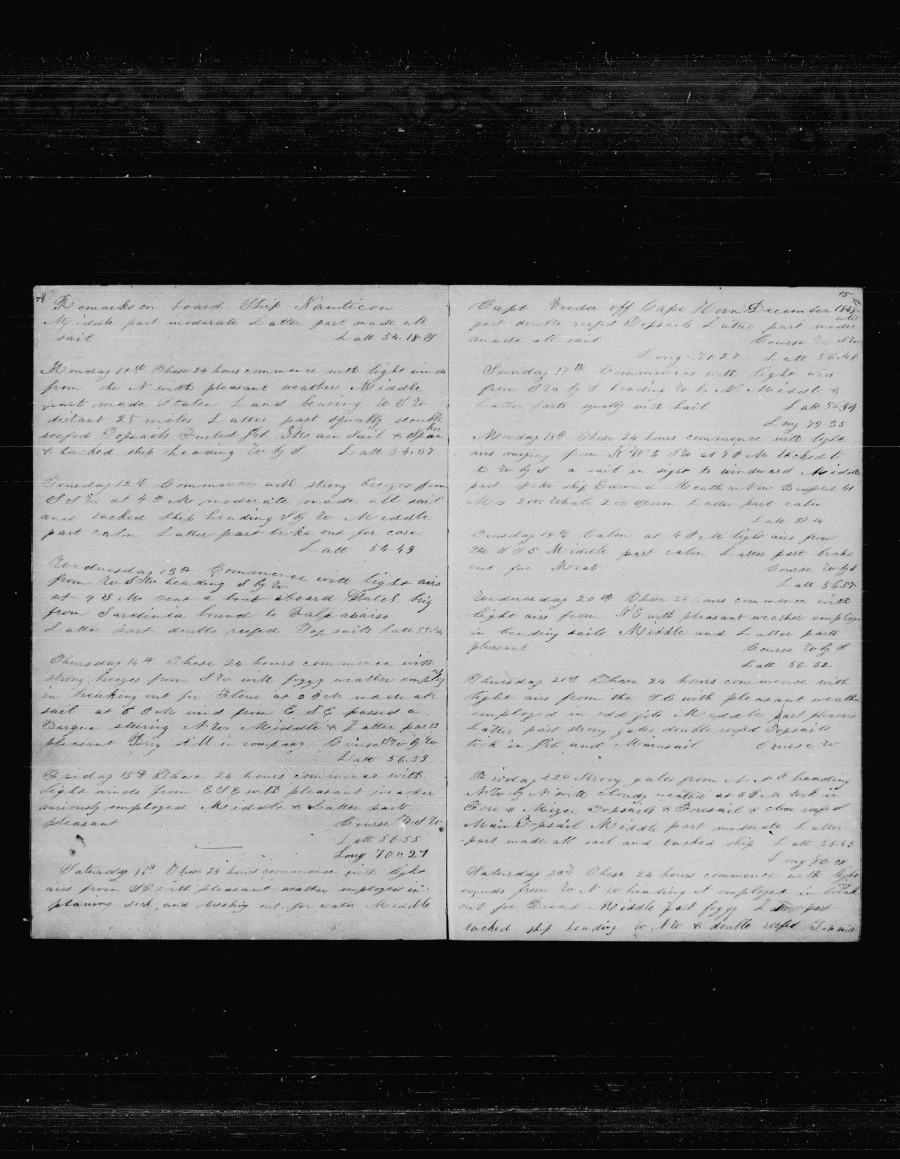 Remarks on board Ship Nauticon
Middle part moderate Latter part made all
sail Latt 54.18 S
Monday 11th These 24 hours commence with light winds
from the N with pleasant weather Middle
part made Staten Land bearing W S W
distant 25 miles Latter part squally double
reefed Topsails Furled Jib Main Sail & Spanker
& tacked ship heading W by S Latt 54.57
Tuesday 12th Commences with strong breezes from
S S W at 4 P M moderate made all sail
and tacked Ship heading S by W Middle
part calm Latter part broke out for corn
Latt 54.49
Wednesday 13th Commence with light airs
from W S W heading S by W
at 4 P M sent a boat aboard brig
from Sardinia bound to Valparaiso
Latter part double reefed Topsails Latt
Thursday 14th These 24 hours commence with
strong breezes from S W with foggy weather employ
in breaking out for at 2 P M made all
sail at 6 P M wind from E S E passed a
Barque steering N W Middle & Latter parts
pleasant still in company Course S W by W
Latt 56.39
Friday 15th These 24 hours commence with
light winds from E S E with pleasant weather
variously employed Middle & Latter parts
pleasant Course W S W
Latt 56.55
Long 70 " 27
Saturday 16th These 24 hours commence with light
airs from S E with pleasant weather employed in
planing deck and breaking out for water Middle
15
Capt Veeder off Cape Horn December
part double reefed Topsails Latter part moderate
made all sail Course W N W
Long 71 27 Latt 56.48
Sunday 17th Commences with light airs
from S W by S heading W by N Middle &
Latter parts squally with hail Latt 56.34
Long 72 35
Monday 18th These 24 hours commence with light
airs varying from N W to W at 7 P M tacked
to W by S a sail in sight to windward Middle
part spoke ship Edward Heath New Bedford 41
Ms 2000 Whale 200 Sperm Latter part calm
Latt 14
Tuesday 19th Calm at 4 P M light airs from
the S S E Middle part calm Latter part broke
out for Meat Course W by S
Latt 56.57
Wednesday 20th These 24 hours commence with
light airs from N E with pleasant weather employed
in bending sails Middle and Latter parts
pleasant Course W by S
Latt 56.52
Thursday 21st These 24 hours commence with
light airs from the S E with pleasant weather
employed in odd jobs Middle part pleasant
Latter part strong gales double reefed Topsails
took in Jib and Mainsail Course W
Friday 22d Strong gales from N N E heading
N W by N with cloudy weather at 5 P M took in
Fore & Mizen Topsails & Foresail & close reefed
Main Topsail Middle part moderate Latter
part made all sail and tacked ship Latt 55.43
Long 80.00
Saturday 23d These 24 hours commence with light
winds from W N W heading N employed in breaking
out for Bread Middle part foggy Latter part
tacked ship heading W N W & double reefed Topsails